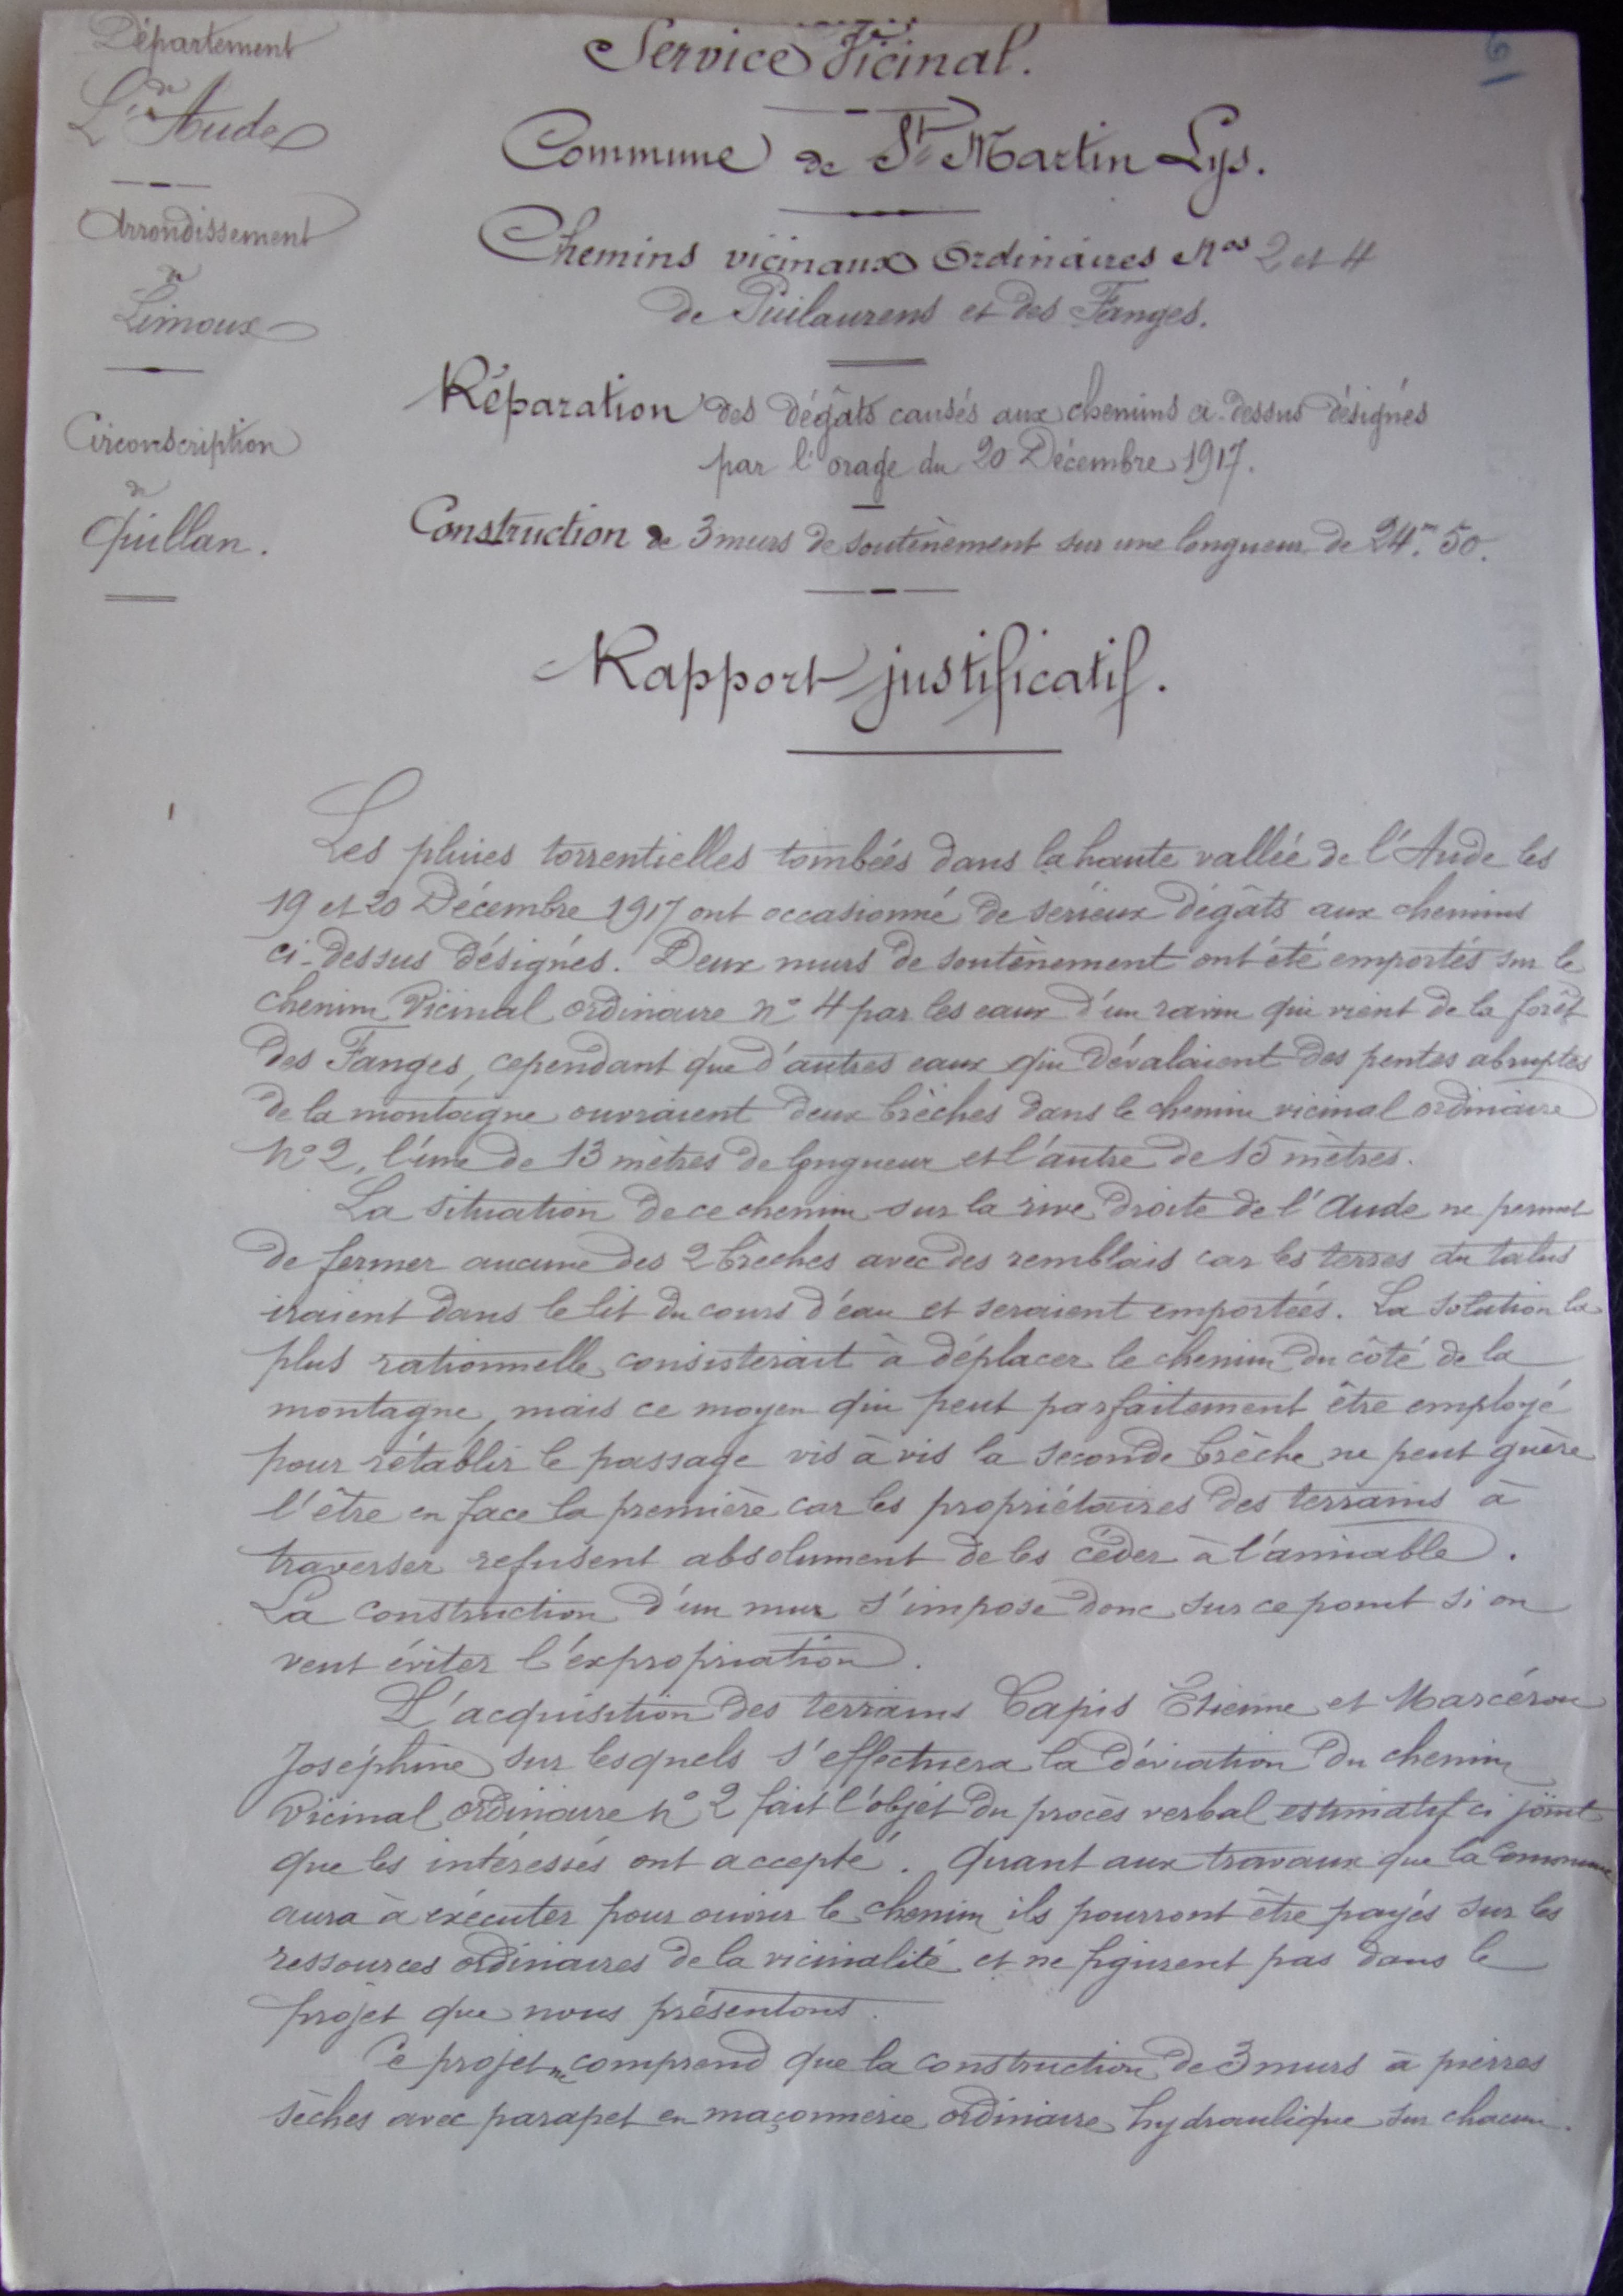 Département
de
L'Aude
Arrondissement
de
Limoux
Circonscription
de
Quillan.
Service Vicinal.
Commune de St Martin Lys.
Chemins vicinaux Ordinaires Nos 2 et 4
de Puilaurens et des Fanges.
Réparation des dégâts causés aux chemins ci-dessus désignés
par l'orage du 20 Décembre 1917.
Construction de 3 murs de soutènement sur une longueur de 24m.50.
Rapport justificatif.
Les pluies torrentielles tombées dans la haute vallée de l'Aude les
19 et 20 Décembre 1917 ont occasionné de sérieux dégâts aux chemins
ci-dessus désignés. Deux murs de soutènement ont été emportés sur le
chemin Vicinal ordinaire n° 4 par les eaux d'un ravin qui vient de la forêt
des Fanges, cependant que d'autres eaux qui dévalaient des pentes abruptes
de la montagne ouvraient deux brèches dans le chemin vicinal ordinaire
N° 2, l'une de 13 mètres de longueur et l'autre de 15 mètres.
La situation de ce chemin sur la rive droite de l'Aude ne permet
de fermer aucune des 2 brèches avec des remblais car les terres du talus
iraient dans le lit du cours d'eau et seraient emportées. La solution la
plus rationnelle consisterait à déplacer le chemin du côté de la
montagne, mais ce moyen qui peut parfaitement être employé
pour rétablir le passage vis à vis la seconde brèche ne peut guère
l'être en face la première car les propriétaires des terrains à
traverser refusent absolument de les céder à l'amiable.
La construction d'un mur s'impose donc sur ce point si on
veut éviter l'expropriation.
L'acquisition des terrains Capis Etienne et Marcérou
Joséphine sur lesquels s'effectuera la déviation du chemin
Vicinal ordinaire n° 2 fait l'objet du procès verbal estimatif ci joint
que les intéressés ont accepté. Quant aux travaux que la Commune
aura à exécuter pour ouvrir le chemin ils pourront être payés sur les
ressources ordinaires de la vicinalité et ne figurent pas dans le
projet que nous présentons.
Ce projet ne comprend que la construction de 3 murs à pierres
sèches avec parapet en maçonnerie ordinaire hydraulique sur chacun.